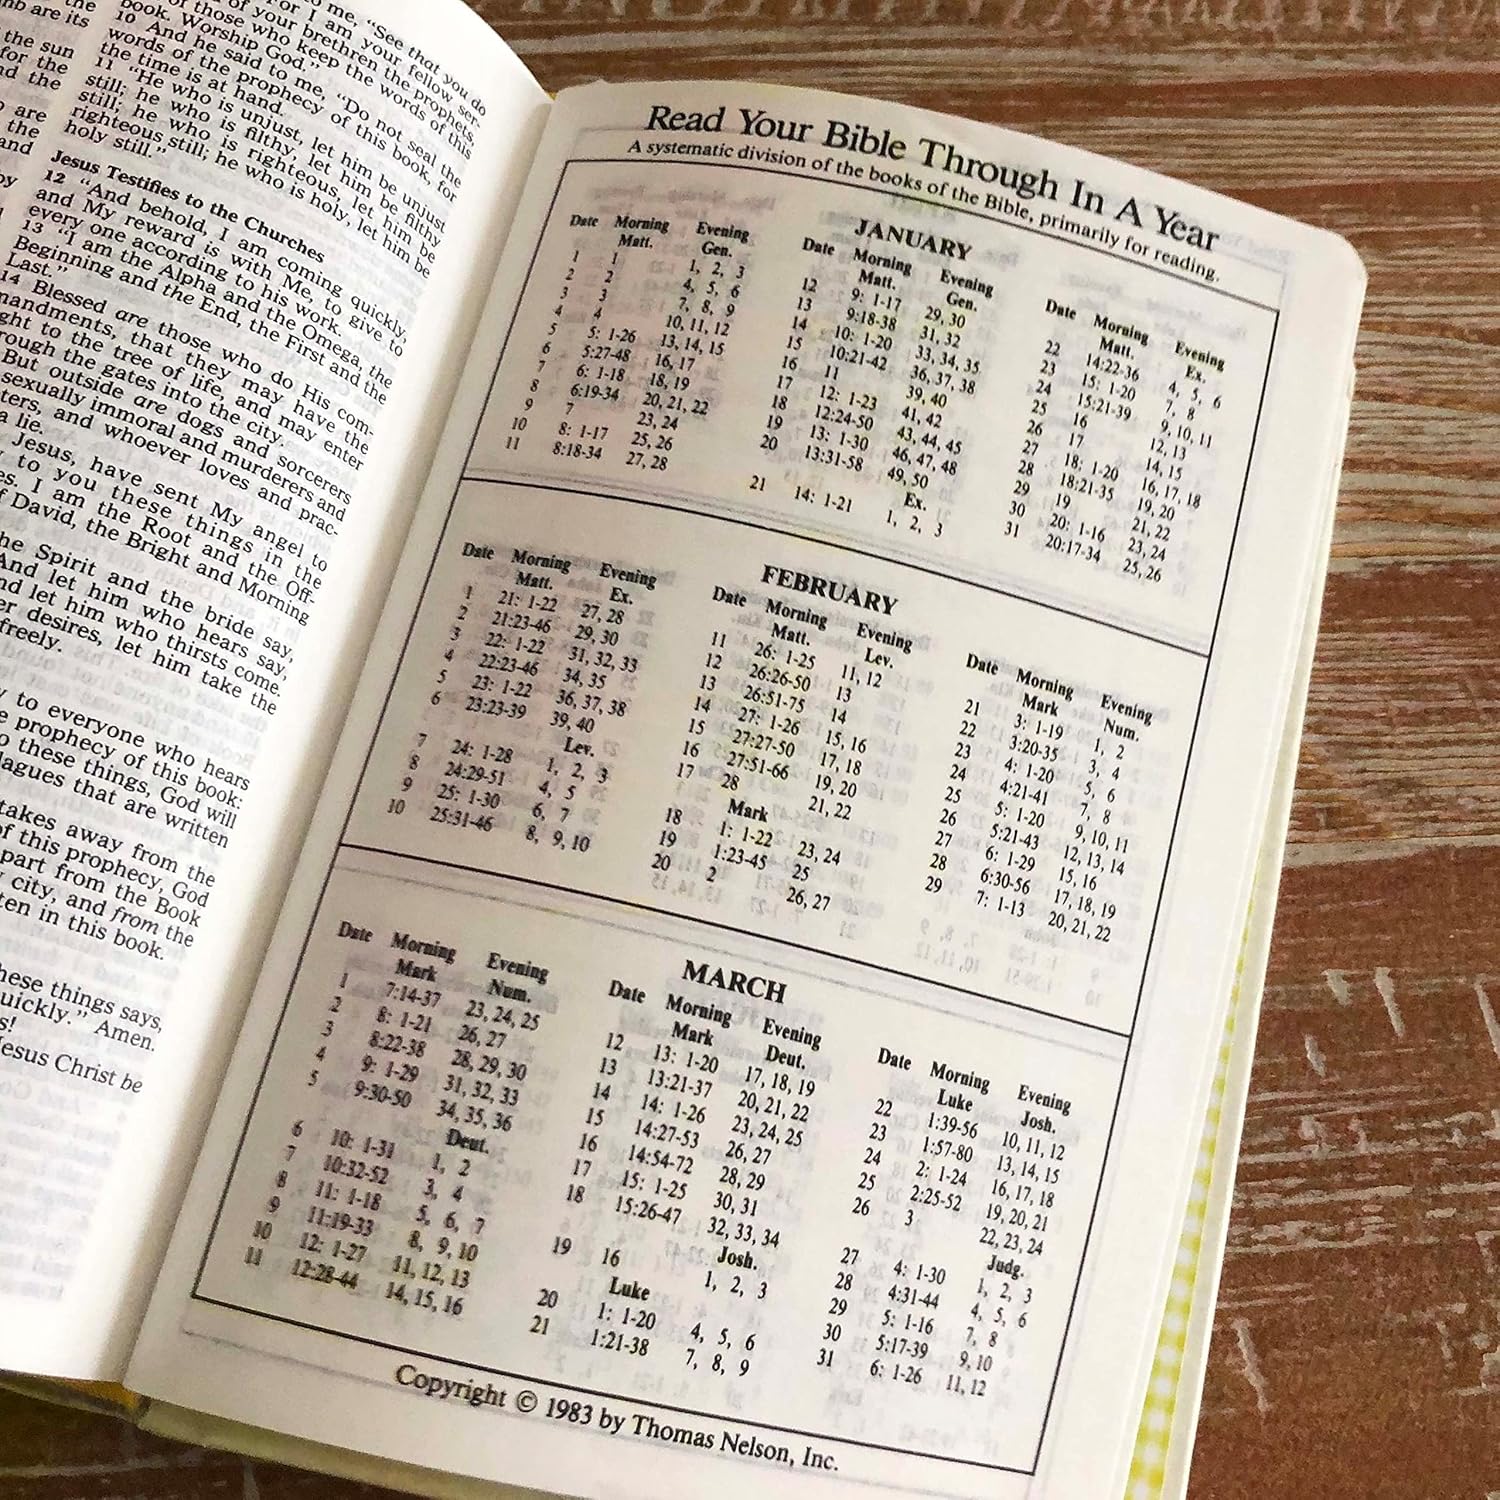 to me, "See that you do
For I am your fellow ser-
of your brethren the prophets,
of those who keep the words of this
book. Worship God."
10 And he said to me, "Do not seal the
words of the prophecy of this book, for
the time is at hand.
11 "He who is unjust, let him be unjust
still; he who is filthy, let him be filthy
still; he who is righteous, let him be
righteous still; he who is holy, let him be
holy still."
Jesus Testifies to the Churches
12 "And behold, I am coming quickly,
and My reward is with Me, to give to
every one according to his work.
13 "I am the Alpha and the Omega, the
Beginning and the End, the First and the
Last."
14 Blessed are those who do His com-
mandments, that they may have the
right to the tree of life, and may enter
through the gates into the city.
But outside are dogs and sorcerers
sexually immoral and murderers and
and whoever loves and prac-
a lie.
Jesus, have sent My angel to
to you these things in the
I am the Root and the Off-
of David, the Bright and Morning
the Spirit and the bride say,
And let him who hears say,
And let him who thirsts come.
desires, let him take the
freely.
to everyone who hears
prophecy of this book:
to these things, God will
plagues that are written
takes away from the
of this prophecy, God
part from the Book
city, and from the
written in this book.
these things says,
quickly." Amen.
Jesus Christ be
Read Your Bible Through In A Year
A systematic division of the books of the Bible, primarily for reading.
JANUARY
Date Morning Evening
Matt. Gen.
1 1 1, 2, 3
2 2 4, 5, 6
3 3 7, 8, 9
4 4 10, 11, 12
5 5: 1-26 13, 14, 15
6 5:27-48 16, 17
7 6: 1-18 18, 19
8 6:19-34 20, 21, 22
9 7 23, 24
10 8: 1-17 25, 26
11 8:18-34 27, 28
Date Morning Evening
Matt. Gen.
12 9: 1-17 29, 30
13 9:18-38 31, 32
14 10: 1-20 33, 34, 35
15 10:21-42 36, 37, 38
16 11 39, 40
17 12: 1-23 41, 42
18 12:24-50 43, 44, 45
19 13: 1-30 46, 47, 48
20 13:31-58 49, 50
Ex.
21 14: 1-21 1, 2, 3
Date Morning Evening
Matt. Ex.
22 14:22-36 4, 5, 6
23 15: 1-20 7, 8
24 15:21-39 9, 10, 11
25 16 12, 13
26 17 14, 15
27 18: 1-20 16, 17, 18
28 18:21-35 19, 20
29 19 21, 22
30 20: 1-16 23, 24
31 20:17-34 25, 26
FEBRUARY
Date Morning Evening
Matt. Ex.
1 21: 1-22 27, 28
2 21:23-46 29, 30
3 22: 1-22 31, 32, 33
4 22:23-46 34, 35
5 23: 1-22 36, 37, 38
6 23:23-39 39, 40
Lev.
7 24: 1-28 1, 2, 3
8 24:29-51 4, 5
9 25: 1-30 6, 7
10 25:31-46 8, 9, 10
Date Morning Evening
Matt. Lev.
11 26: 1-25 11, 12
12 26:26-50 13
13 26:51-75 14
14 27: 1-26 15, 16
15 27:27-50 17, 18
16 27:51-66 19, 20
17 28 21, 22
Mark
18 1: 1-22 23, 24
19 1:23-45 25
20 2 26, 27
Date Morning Evening
Mark Num.
21 3: 1-19 1, 2
22 3:20-35 3, 4
23 4: 1-20 5, 6
24 4:21-41 7, 8
25 5: 1-20 9, 10, 11
26 5:21-43 12, 13, 14
27 6: 1-29 15, 16
28 6:30-56 17, 18, 19
29 7: 1-13 20, 21, 22
MARCH
Date Morning Evening
Mark Num.
1 7:14-37 23, 24, 25
2 8: 1-21 26, 27
3 8:22-38 28, 29, 30
4 9: 1-29 31, 32, 33
5 9:30-50 34, 35, 36
Deut.
6 10: 1-31 1, 2
7 10:32-52 3, 4
8 11: 1-18 5, 6, 7
9 11:19-33 8, 9, 10
10 12: 1-27 11, 12, 13
11 12:28-44 14, 15, 16
Date Morning Evening
Mark Deut.
12 13: 1-20 17, 18, 19
13 13:21-37 20, 21, 22
14 14: 1-26 23, 24, 25
15 14:27-53 26, 27
16 14:54-72 28, 29
17 15: 1-25 30, 31
18 15:26-47 32, 33, 34
Josh.
19 16 1, 2, 3
Luke
20 1: 1-20 4, 5, 6
21 1:21-38 7, 8, 9
Date Morning Evening
Luke Josh.
22 1:39-56 10, 11, 12
23 1:57-80 13, 14, 15
24 2: 1-24 16, 17, 18
25 2:25-52 19, 20, 21
26 3 22, 23, 24
Judg.
27 4: 1-30 1, 2, 3
28 4:31-44 4, 5, 6
29 5: 1-16 7, 8
30 5:17-39 9, 10
31 6: 1-26 11, 12
Copyright © 1983 by Thomas Nelson, Inc.